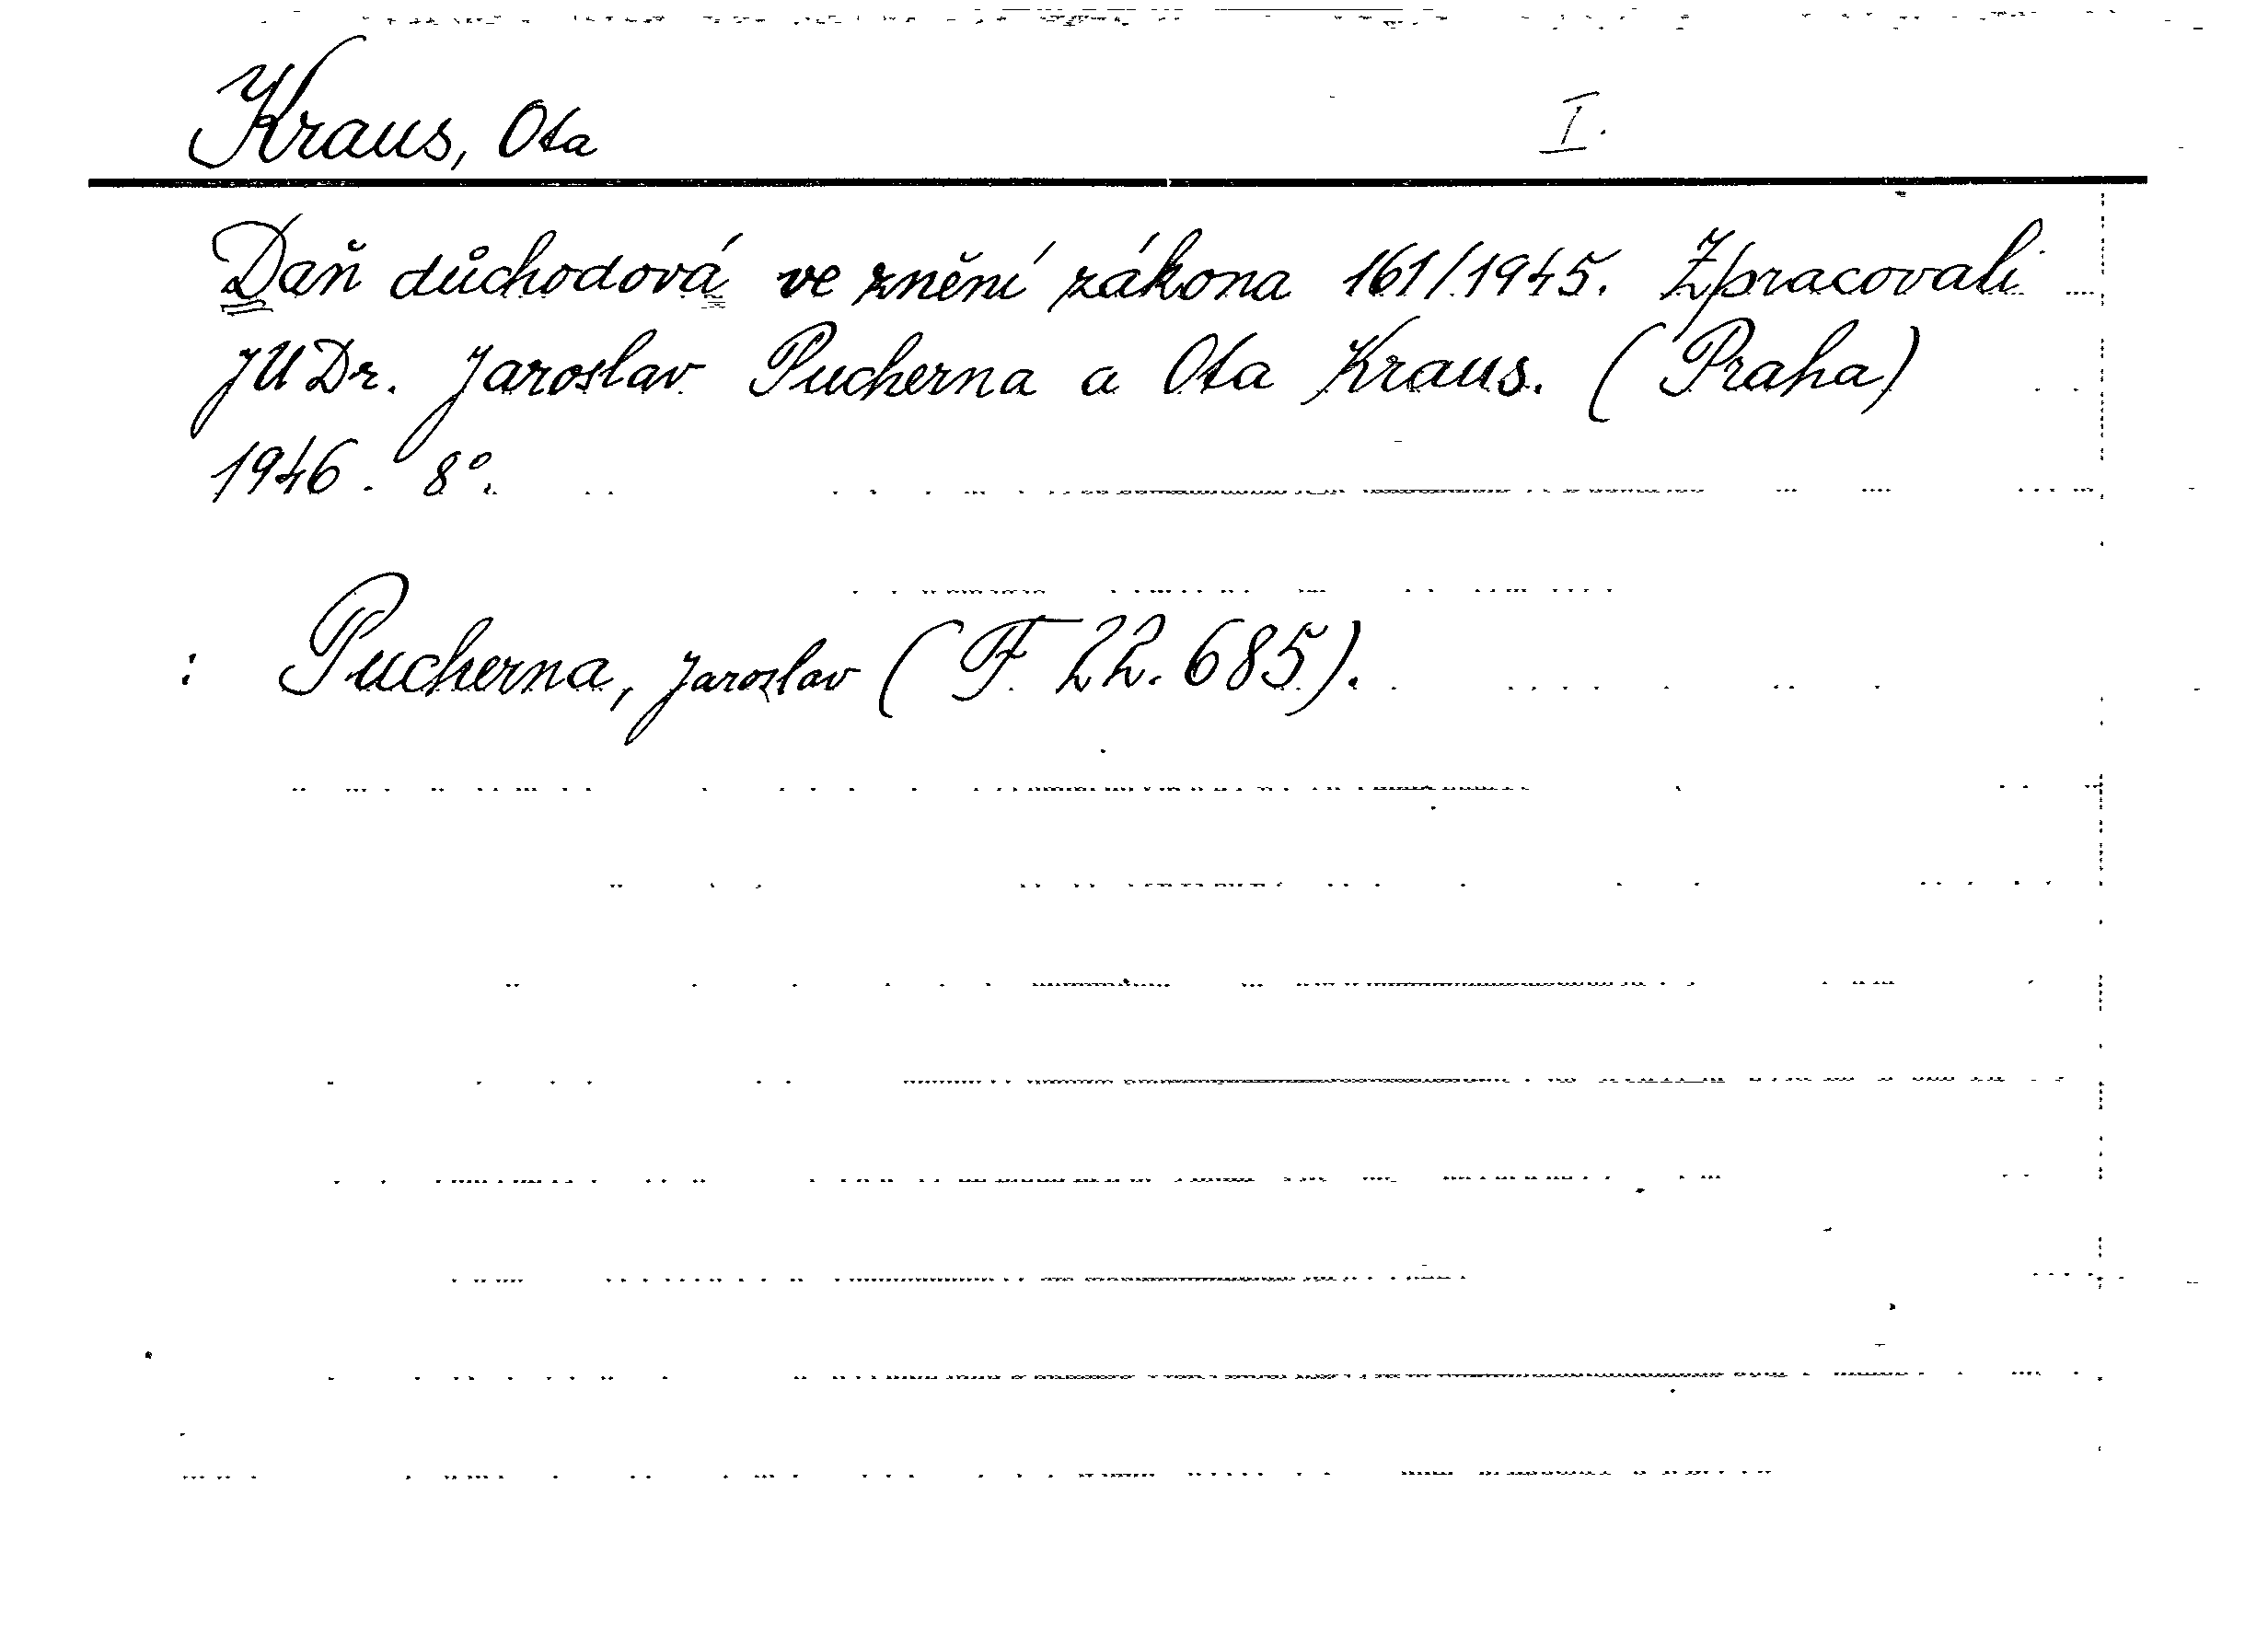 Kraus, Ota I.
Daň důchodová ve znění zákona 161/1945. Zpracovali
JUDr. Jaroslav Pucherna a Ota Kraus. (Praha)
1946. 8°.
: Pucherna, Jaroslav (F 22.685).